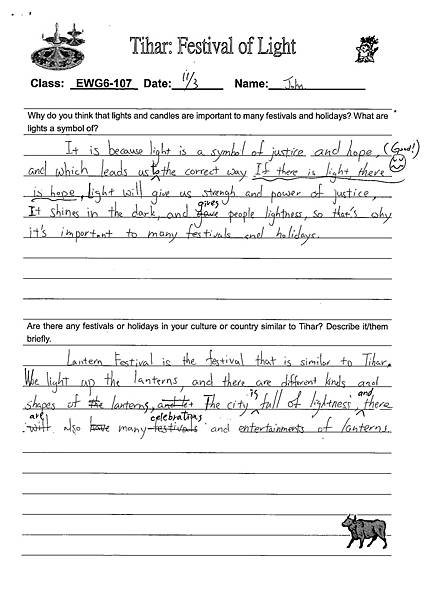 Tihar: Festival of Light
Class: EWG6-107 Date: 11/3 Name: John
Why do you think that lights and candles are important to many festivals and holidays? What are
lights a symbol of?
It is because light is a symbol of justice and hope, (Good!)
and which leads us to the correct way If there is light there
is hope, light will give us strengh and power of justice,
It shines in the dark, and gave gives people lightness, so that's why
it's important to many festivals and holidays.
Are there any festivals or holidays in your culture or country similar to Tihar? Describe it/them
briefly.
Lantern Festival is the festival that is similar to Tihar.
We light up the lanterns, and there are different kinds and
shapes of the lanterns, The city is full of lightness, and there
will are also have many festivals celebrating and entertainments of lanterns.